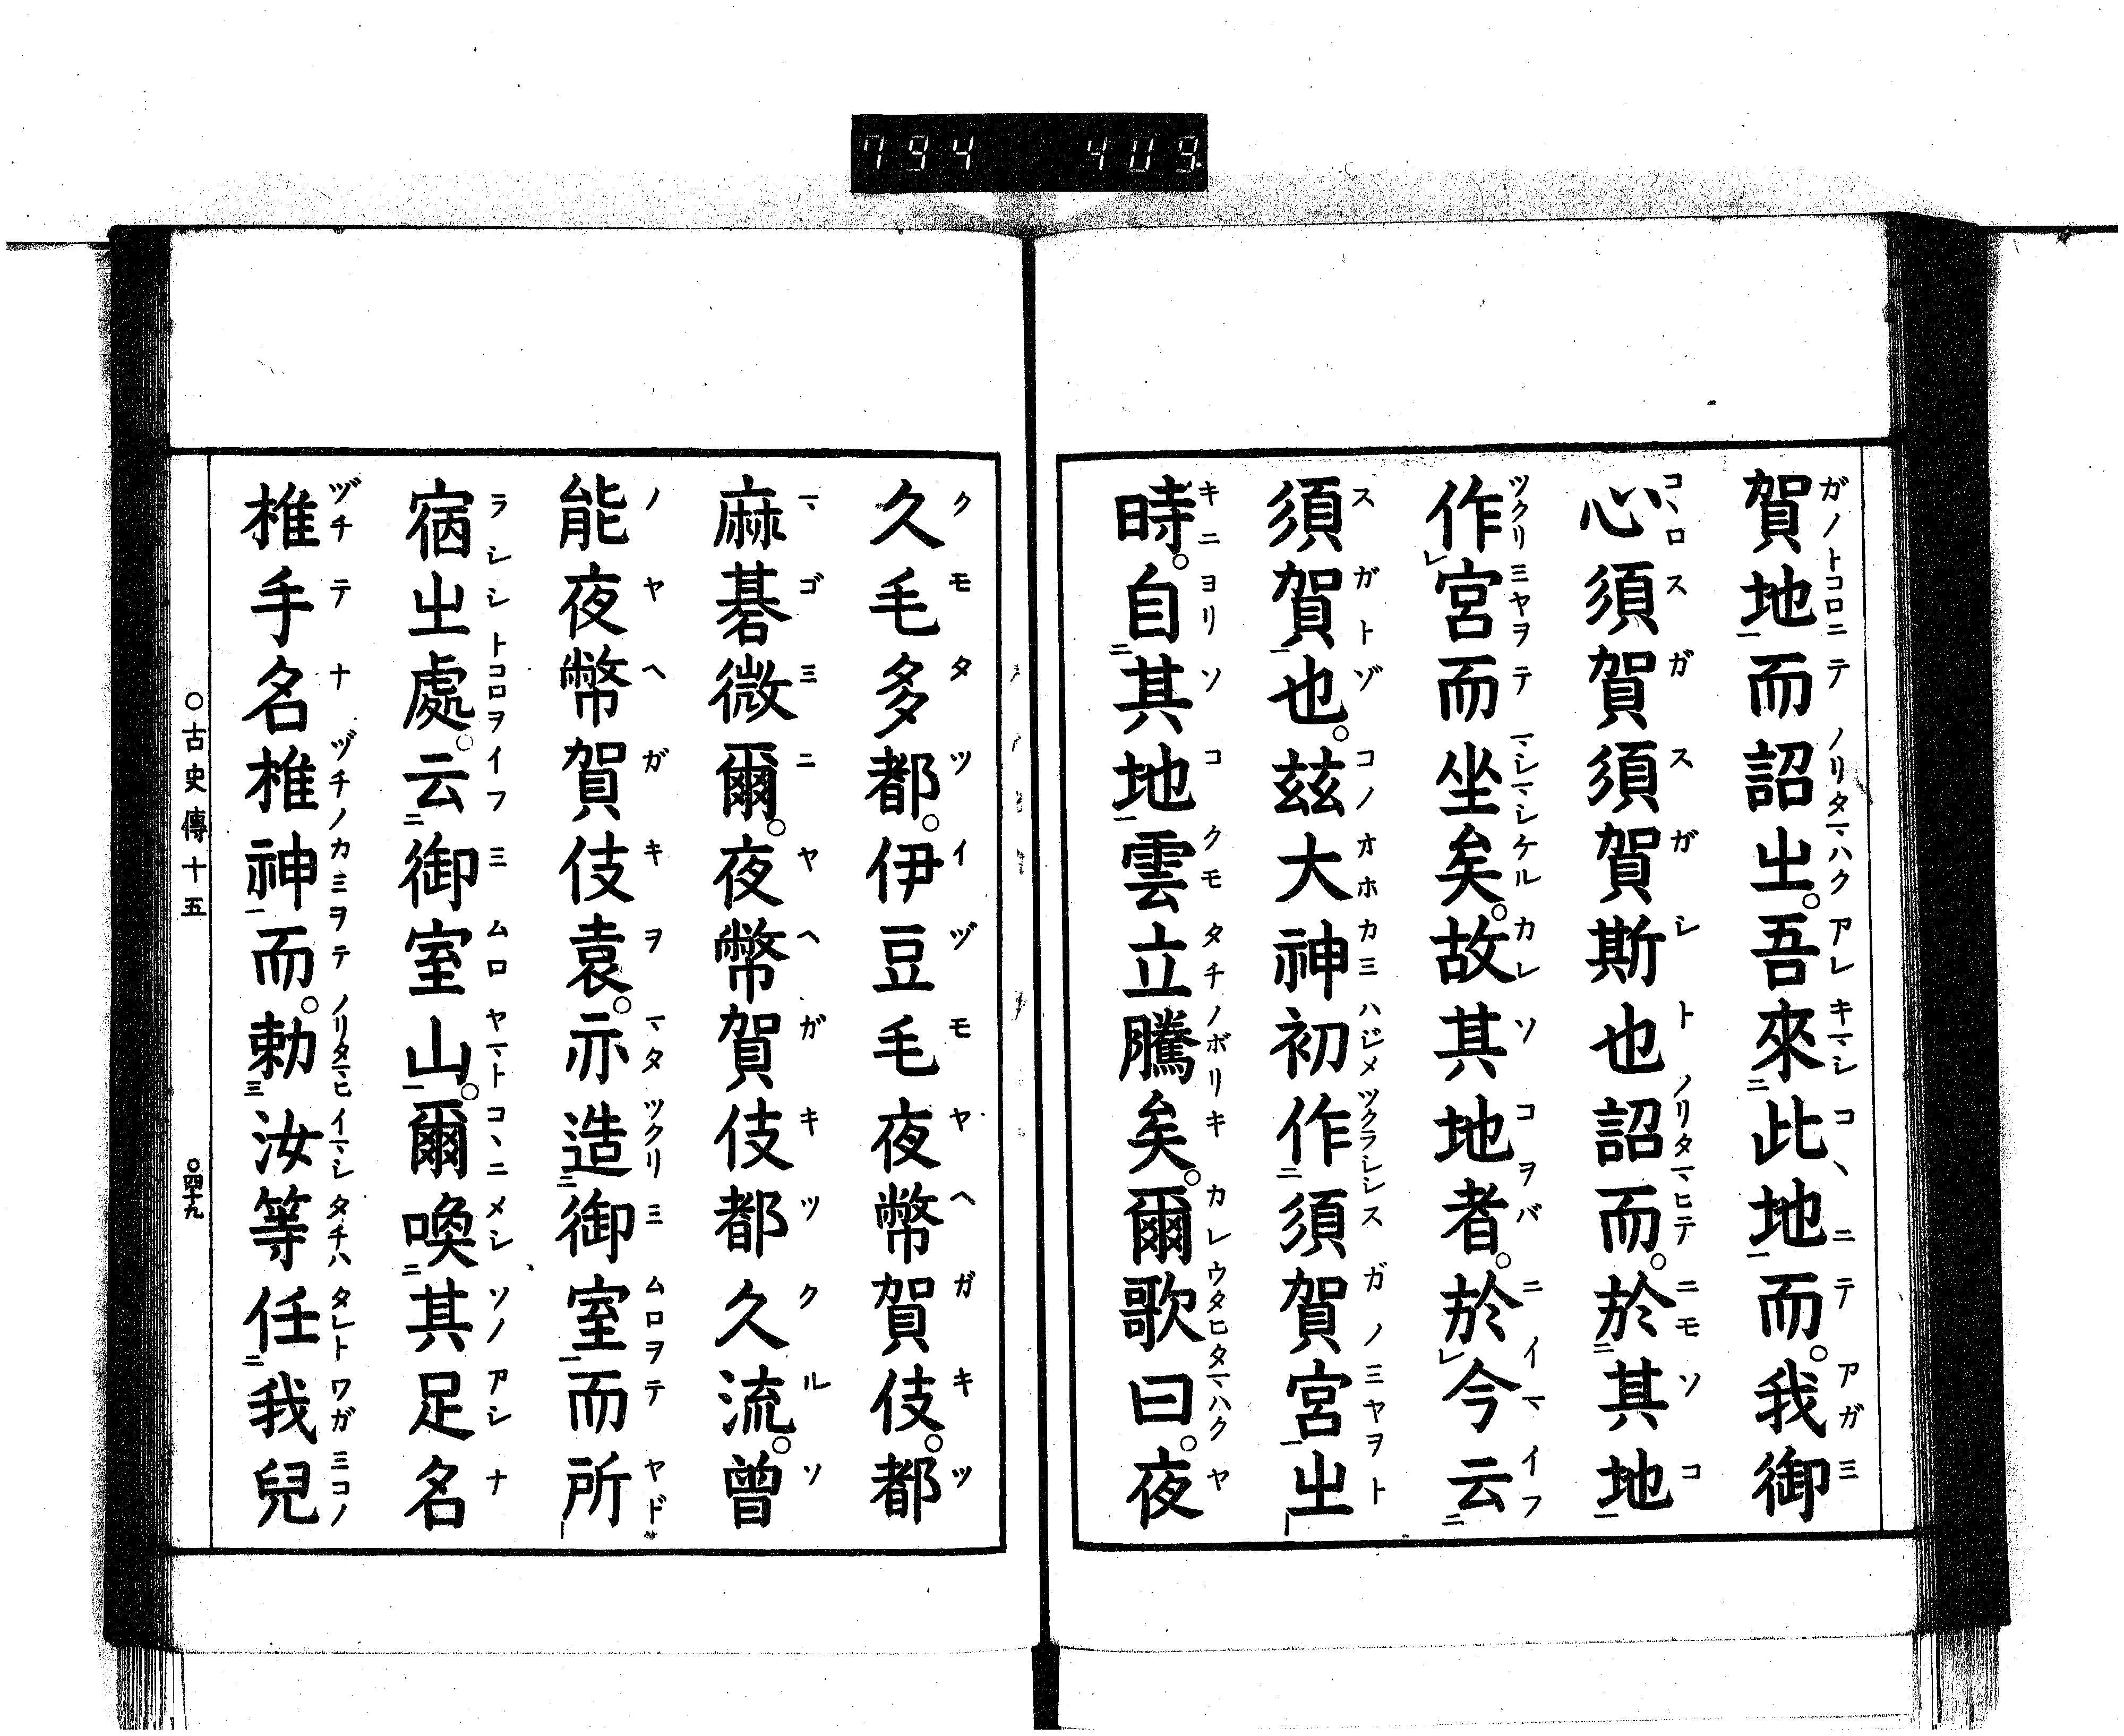 794 409
賀地而詔之。吾來此地而。我御
心須賀須賀斯也詔而。於其地
作宮而坐矣。故其地者。於今云
須賀也。玆大神初作須賀宮之
時。自其地雲立騰矣。爾歌曰。夜
久毛多都。伊豆毛夜幣賀伎。都
麻碁微爾。夜幣賀伎都久流。曾
能夜幣賀伎袁。亦造御室而所
宿之處。云御室山。爾喚其足名
椎手名椎神而。勅汝等任我兒
○古史傳十五 ○四十九